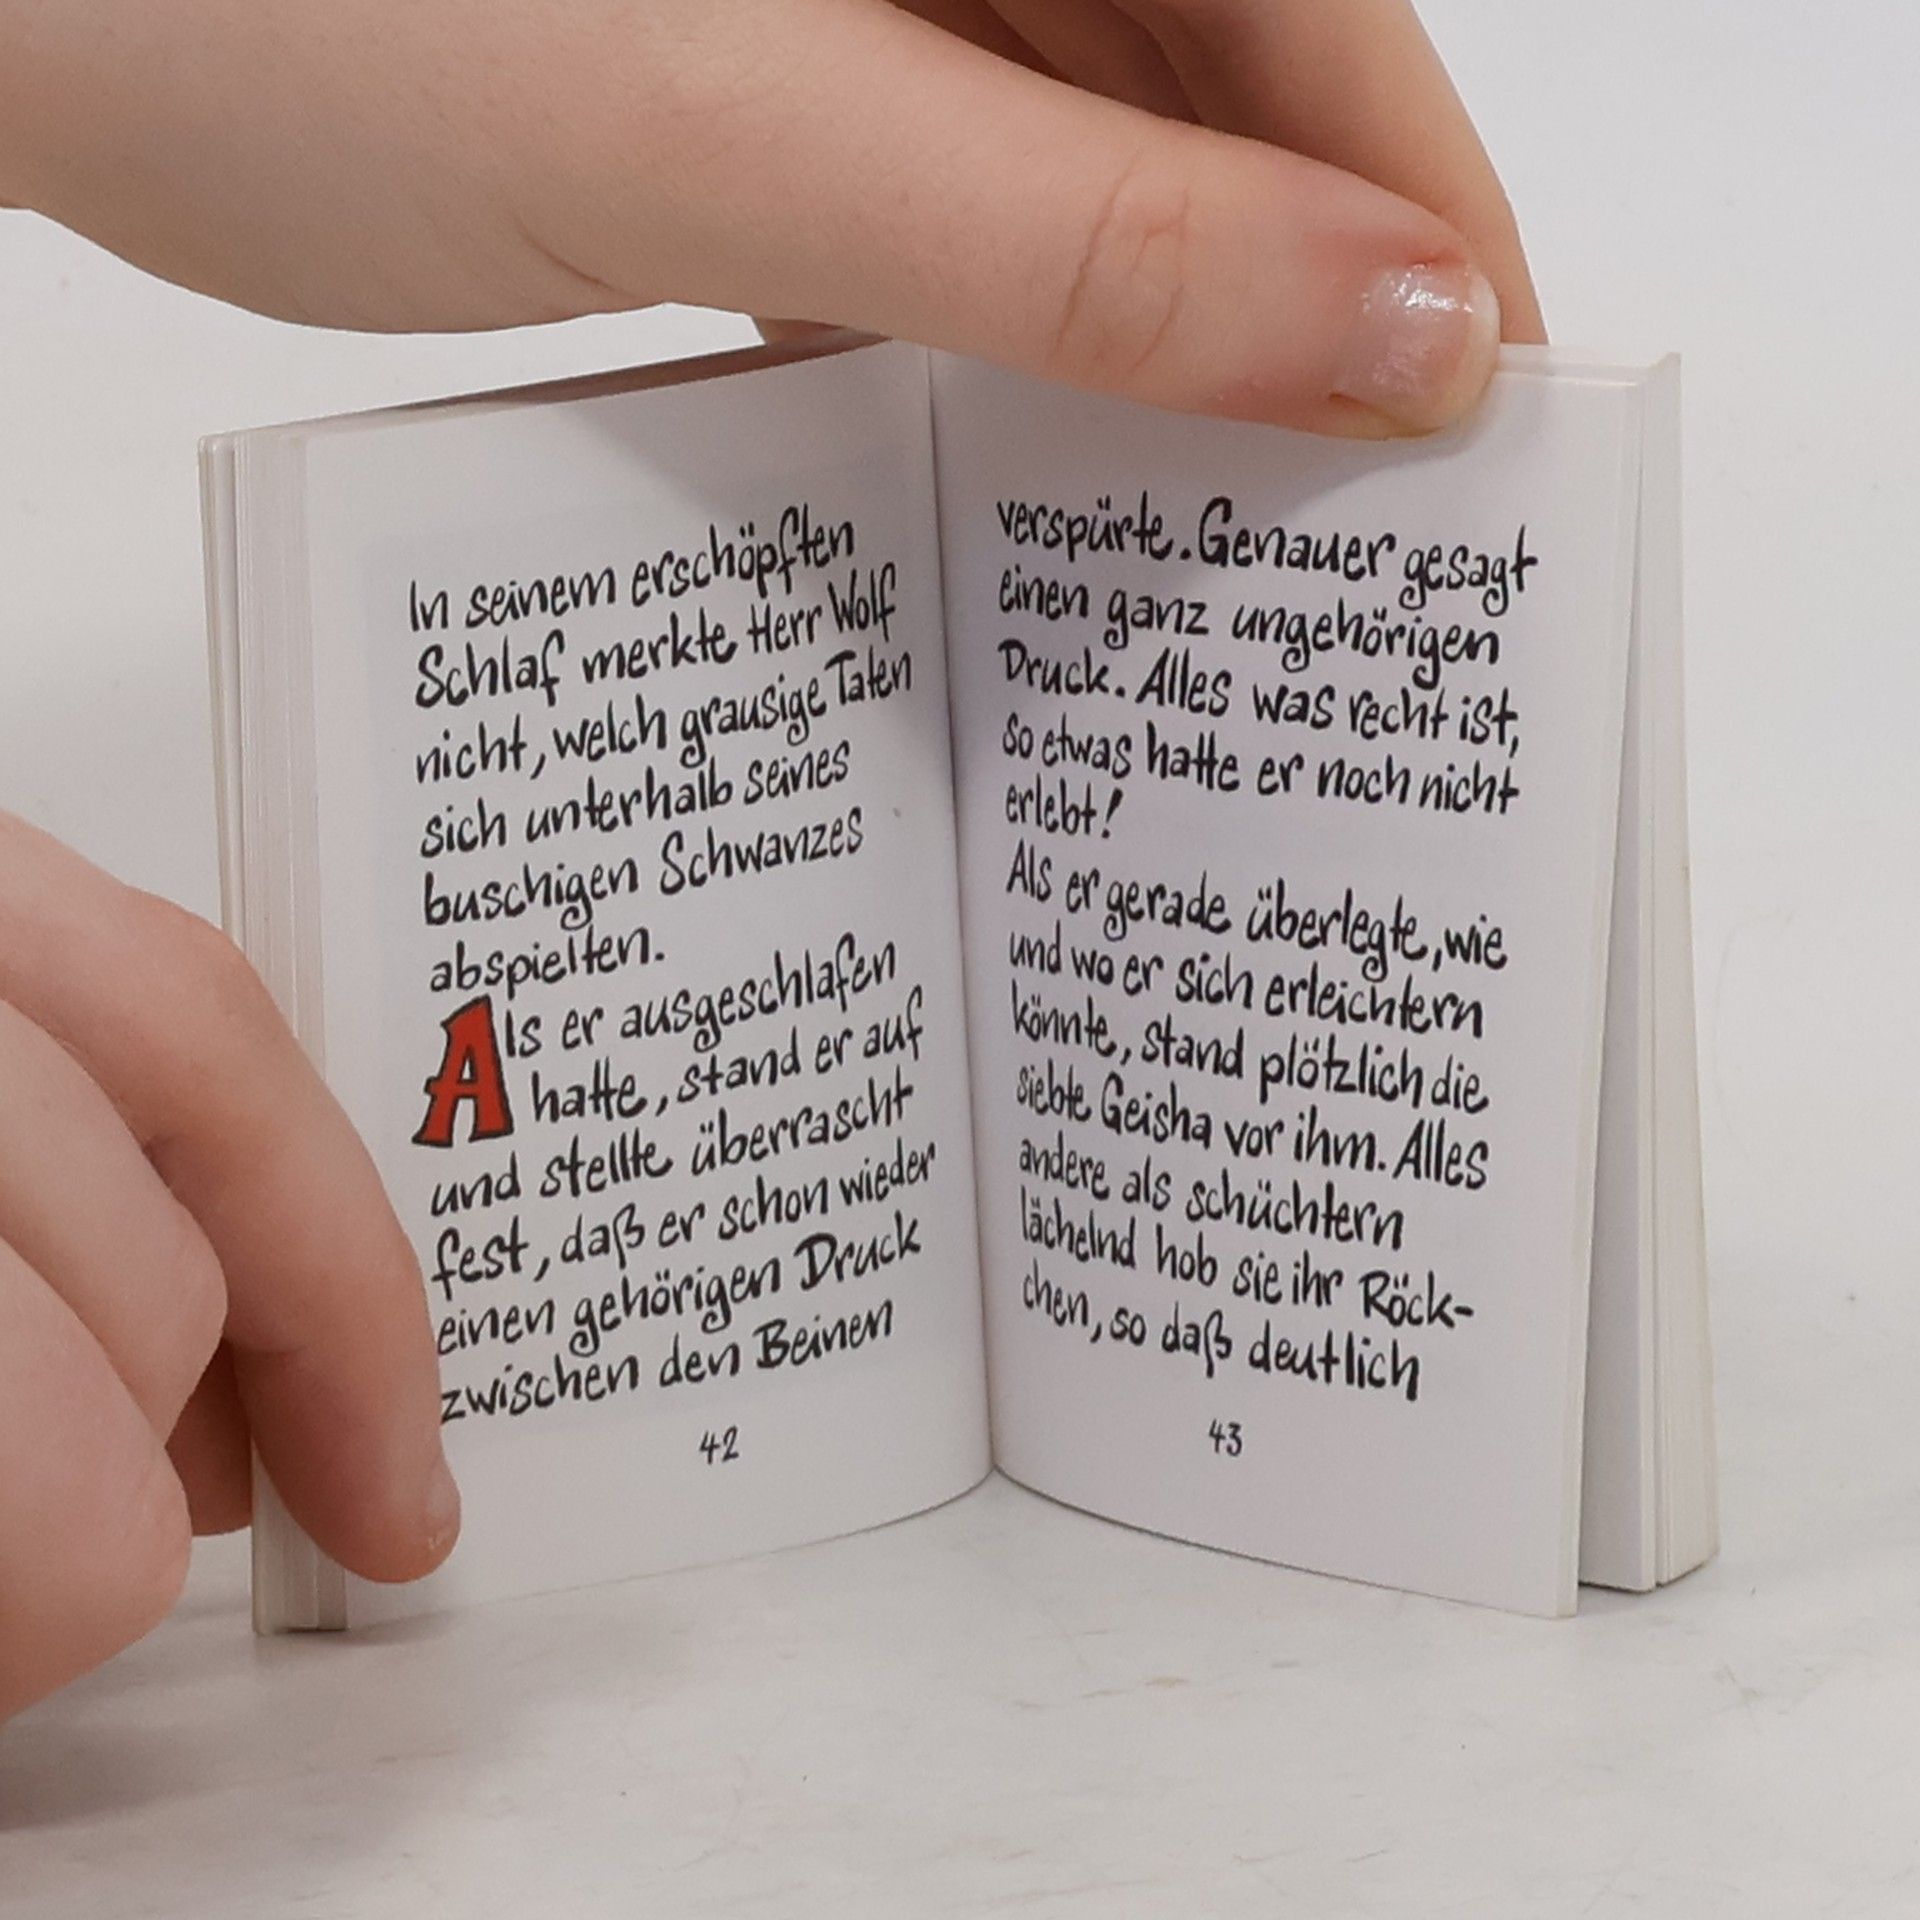 In seinem erschöpften
Schlaf merkte Herr Wolf
nicht, welch grausige Taten
sich unterhalb seines
buschigen Schwanzes
abspielten.
Als er ausgeschlafen
hatte, stand er auf
und stellte überrascht
fest, daß er schon wieder
einen gehörigen Druck
zwischen den Beinen
42
verspürte. Genauer gesagt
einen ganz ungehörigen
Druck. Alles was recht ist,
so etwas hatte er noch nicht
erlebt!
Als er gerade überlegte, wie
und wo er sich erleichtern
könnte, stand plötzlich die
siebte Geisha vor ihm. Alles
andere als schüchtern
lächelnd hob sie ihr Röck-
chen, so daß deutlich
43